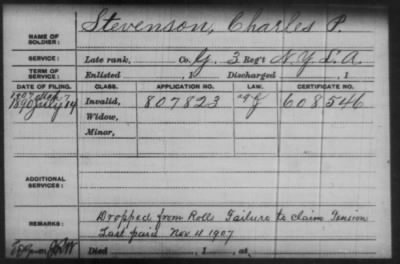 Stevenson, Charles P.
NAME OF SOLDIER:
SERVICE: Late rank, Co. G, 3 Reg't N.Y. L.A.
TERM OF SERVICE: Enlisted , 1 Discharged , 1
DATE OF FILING. CLASS. APPLICATION NO. LAW. CERTIFICATE NO.
1890 July 14 Invalid, 807823 608546
Widow,
Minor,
ADDITIONAL SERVICES:
REMARKS: Dropped from Rolls Failure to claim Pension
Last paid Nov 4 1907
Died , 1 , at